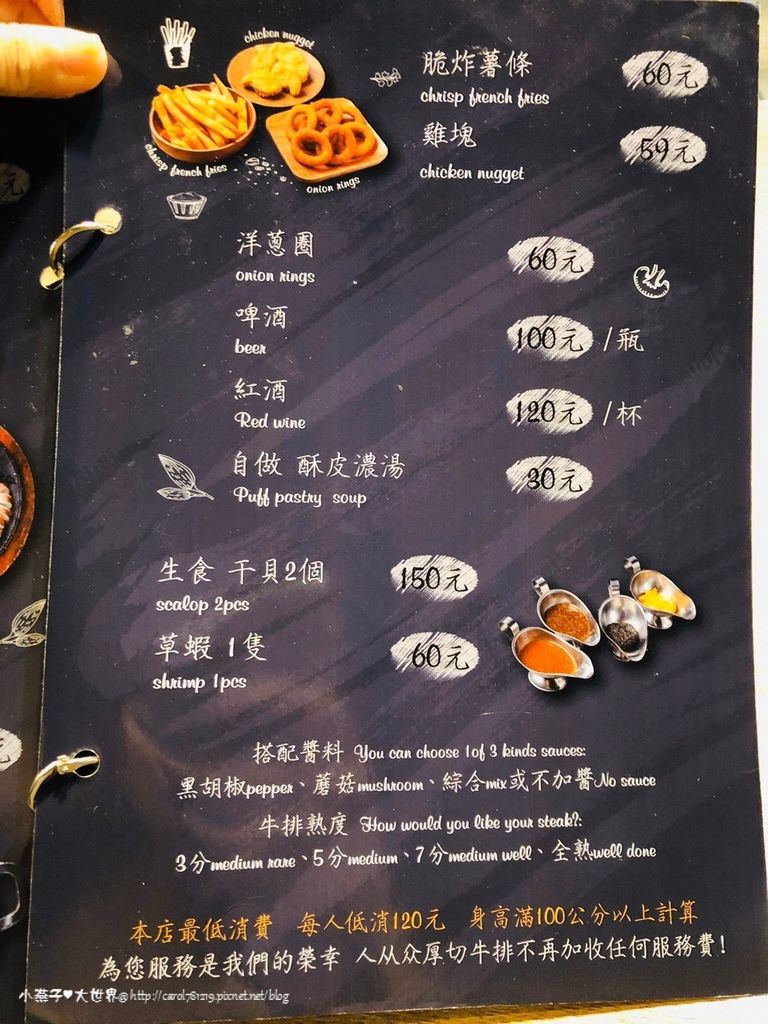 chicken nugget
chrisp french fries
onion rings
脆炸薯條 60元
chrisp french fries
雞塊 59元
chicken nugget
洋蔥圈 60元
onion rings
啤酒 100元 /瓶
beer
紅酒 120元 /杯
Red wine
自做 酥皮濃湯 30元
Puff pastry soup
生食 干貝2個 150元
scalop 2pcs
草蝦 1隻 60元
shrimp 1pcs
搭配醬料 You can choose 1of 3 kinds sauces:
黑胡椒pepper、蘑菇mushroom、綜合mix或不加醬No sauce
牛排熟度 How would you like your steak?:
3分medium rare、5分medium、7分medium well、全熟well done
本店最低消費 每人低消120元 身高滿100公分以上計算
為您服務是我們的榮幸 人从众厚切牛排不再加收任何服務費!
小燕子♥大世界@http://carol761219.pixnet.net/blog
元